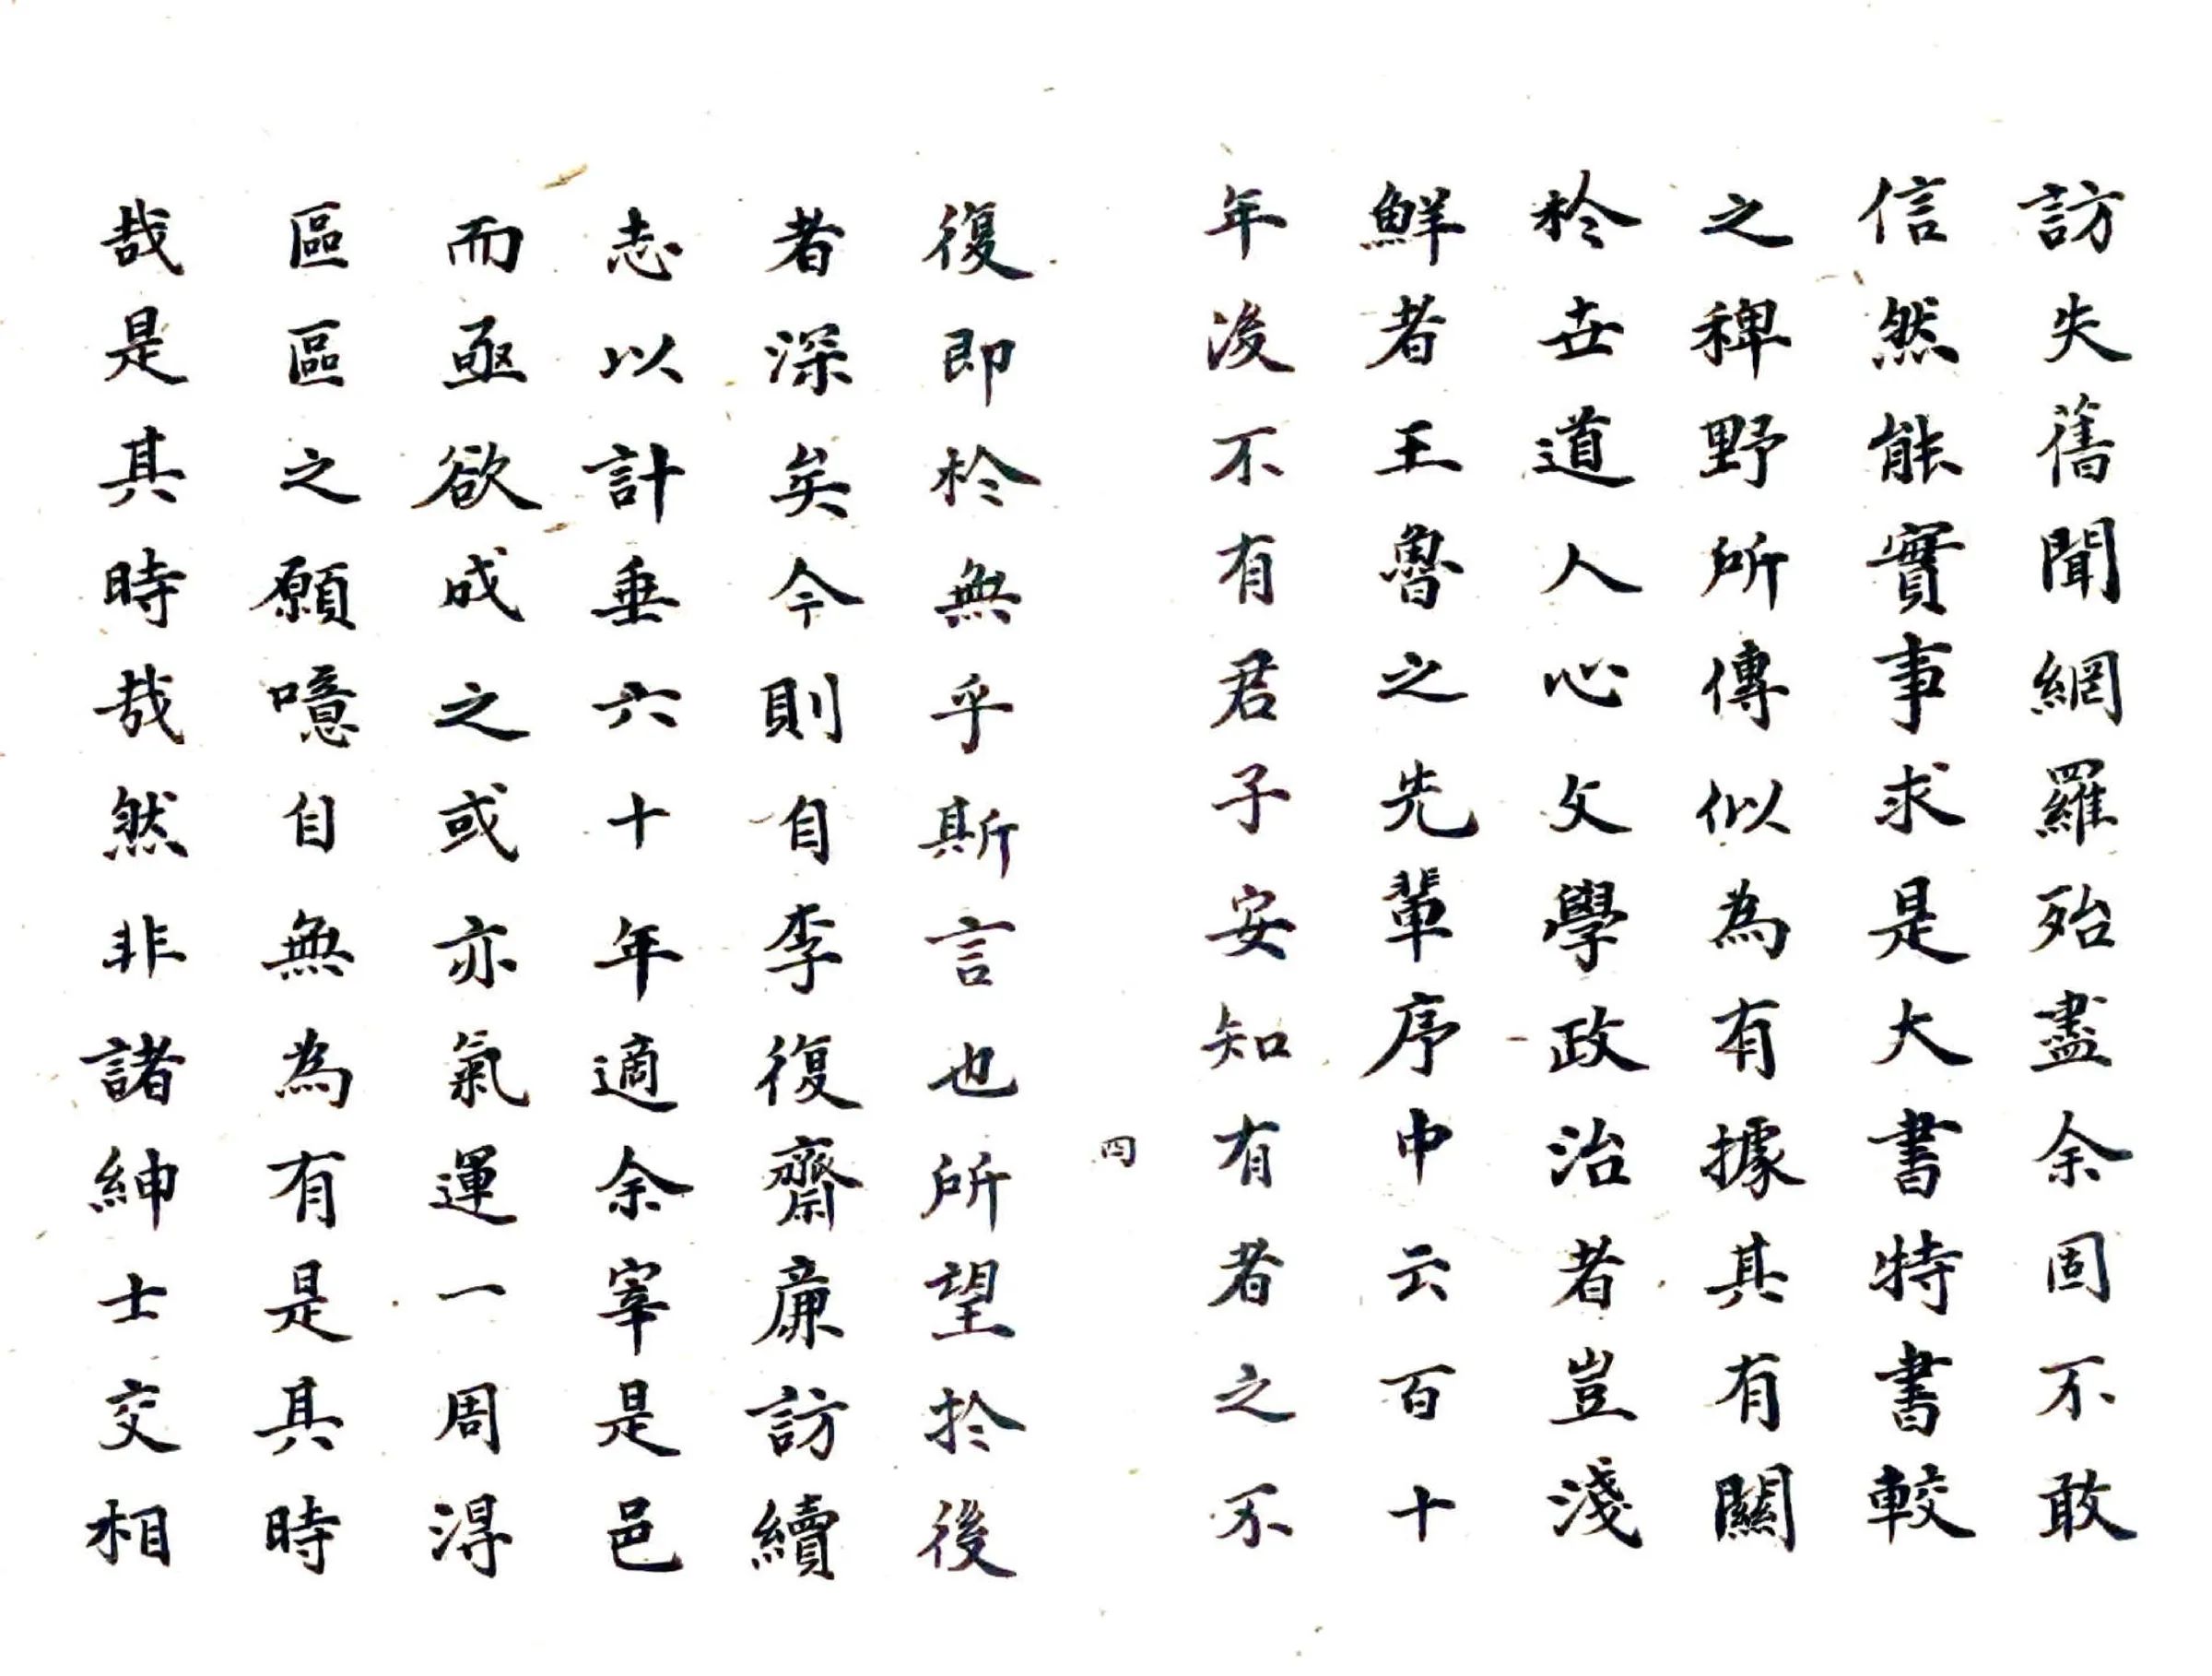 訪失舊聞網羅殆盡余固不敢
信然能實事求是大書特書較
之稗野所傳似為有據其有關
於世道人心文學政治者豈淺
鮮者王魯之先輩序中云百十
年後不有君子安知有者之不
四
復即於無乎斯言也所望於後
者深矣今則自李復齋廉訪續
志以計垂六十年適余宰是邑
而亟欲成之或亦氣運一周得
區區之願噫自無為有是其時
哉是其時哉然非諸紳士交相